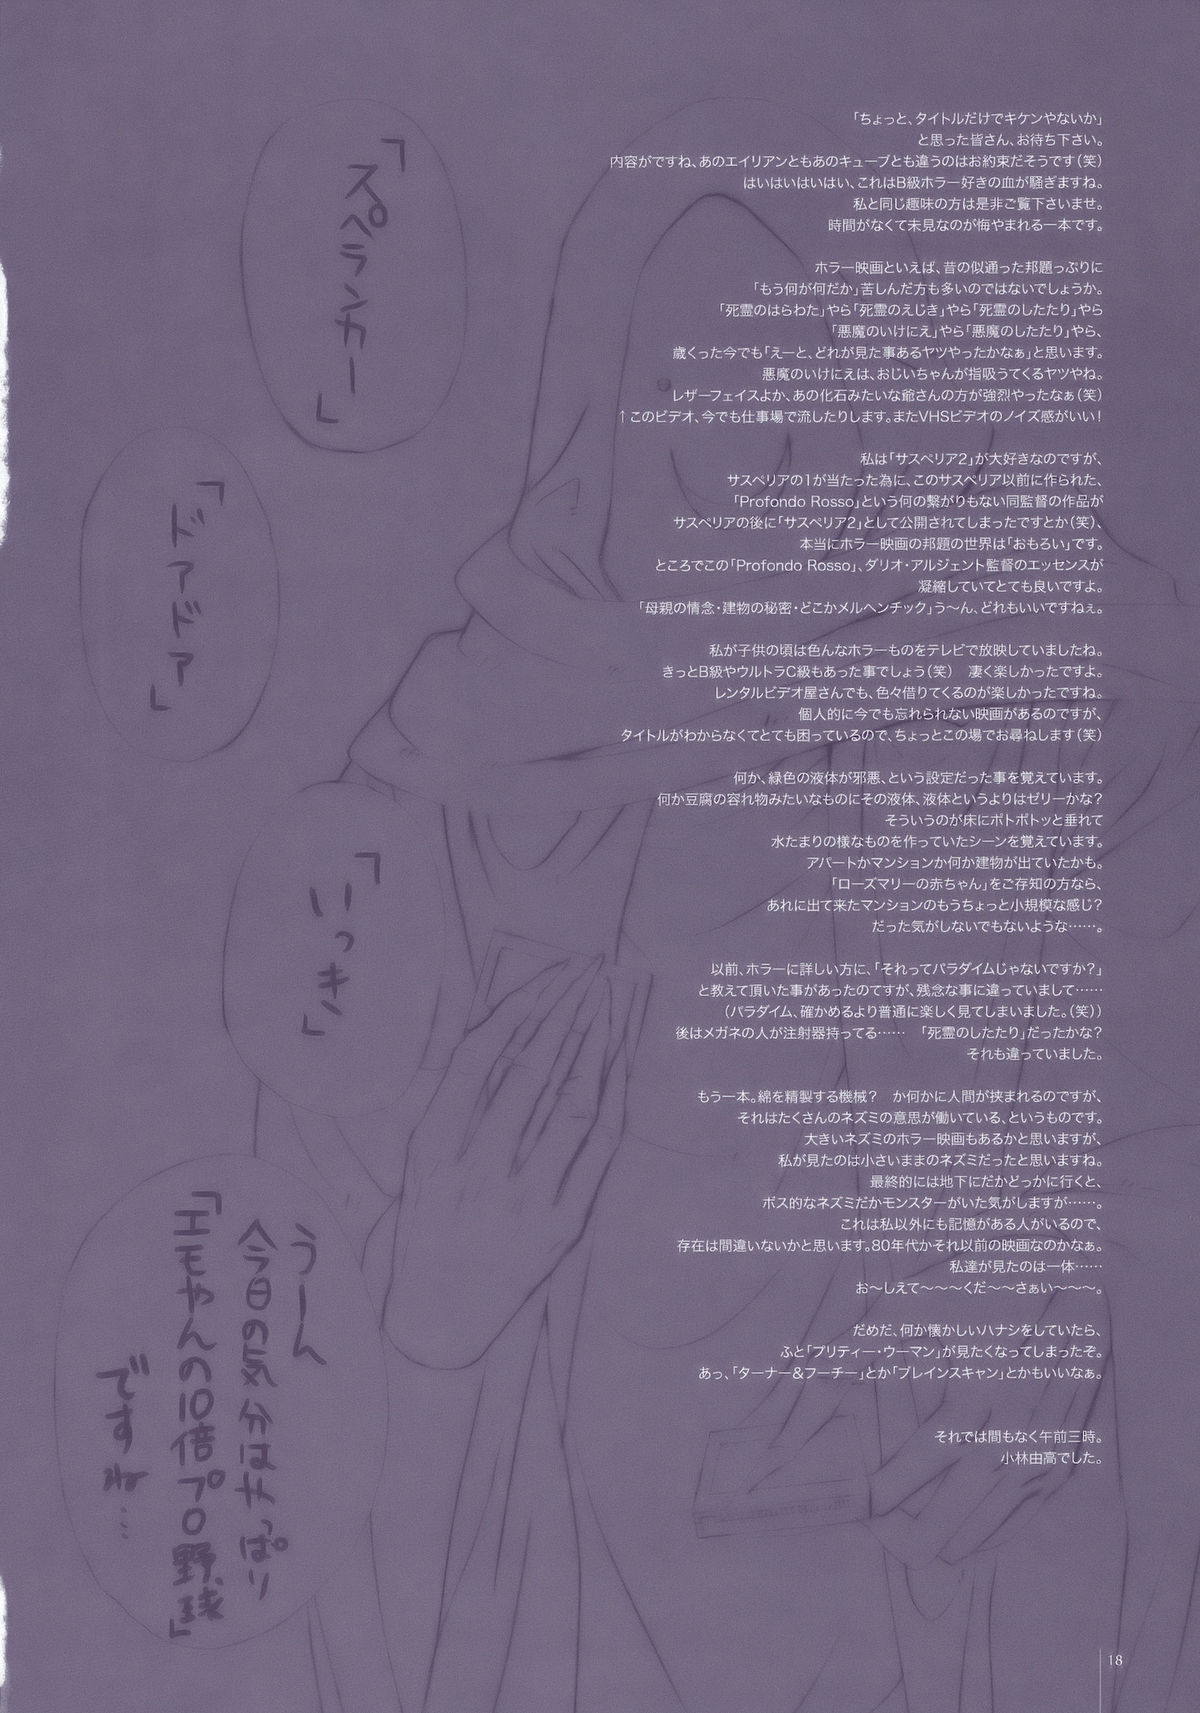 「ちょっと、タイトルだけでキケンやないか」
と思った皆さん、お待ち下さい。
内容がですね、あのエイリアンともあのキューブとも違うのはお約束だそうです（笑）
はいはいはいはい、これはB級ホラー好きの血が騒ぎますね。
私と同じ趣味の方は是非ご覧下さいませ。
時間がなくて未見なのが悔やまれる一本です。
ホラー映画といえば、昔の似通った邦題っぷりに
「もう何が何だか」苦しんだ方も多いのではないでしょうか。
「死霊のはらわた」やら「死霊のえじき」やら「死霊のしたたり」やら
「悪魔のいけにえ」やら「悪魔のしたたり」やら、
歳くった今でも「えーと、どれが見た事あるヤツやったかなぁ」と思います。
悪魔のいけにえは、おじいちゃんが指吸うてくるヤツやね。
レザーフェイスよか、あの化石みたいな爺さんの方が強烈やったなぁ（笑）
↑このビデオ、今でも仕事場で流したりします。またVHSビデオのノイズ感がいい！
私は「サスペリア2」が大好きなのですが、
サスペリアの1が当たった為に、このサスペリア以前に作られた、
「Profondo Rosso」という何の繋がりもない同監督の作品が
サスペリアの後に「サスペリア2」として公開されてしまったですとか（笑）、
本当にホラー映画の邦題の世界は「おもろい」です。
ところでこの「Profondo Rosso」、ダリオ・アルジェント監督のエッセンスが
凝縮していてとても良いですよ。
「母親の情念・建物の秘密・どこかメルヘンチック」う〜ん、どれもいいですねぇ。
私が子供の頃は色んなホラーものをテレビで放映していましたね。
きっとB級やウルトラC級もあった事でしょう（笑）　凄く楽しかったですよ。
レンタルビデオ屋さんでも、色々借りてくるのが楽しかったですね。
個人的に今でも忘れられない映画があるのですが、
タイトルがわからなくてとても困っているので、ちょっとこの場でお尋ねします（笑）
何か、緑色の液体が邪悪、という設定だった事を覚えています。
何か豆腐の容れ物みたいなものにその液体、液体というよりはゼリーかな？
そういうのが床にポトポトッと垂れて
水たまりの様なものを作っていたシーンを覚えています。
アパートかマンションか何か建物が出ていたかも。
「ローズマリーの赤ちゃん」をご存知の方なら、
あれに出て来たマンションのもうちょっと小規模な感じ？
だった気がしないでもないような……。
以前、ホラーに詳しい方に、「それってパラダイムじゃないですか？」
と教えて頂いた事があったのですが、残念な事に違っていまして……
（パラダイム、確かめるより普通に楽しく見てしまいました。（笑））
後はメガネの人が注射器持ってる……　「死霊のしたたり」だったかな？
それも違っていました。
もう一本。綿を精製する機械？　か何かに人間が挟まれるのですが、
それはたくさんのネズミの意思が働いている、というものです。
大きいネズミのホラー映画もあるかと思いますが、
私が見たのは小さいままのネズミだったと思いますね。
最終的には地下にだかどっかに行くと、
ボス的なネズミだかモンスターがいた気がしますが……。
これは私以外にも記憶がある人がいるので、
存在は間違いないかと思います。80年代かそれ以前の映画なのかなぁ。
私達が見たのは一体……
お〜しえて〜〜〜くだ〜〜さぁい〜〜〜。
だめだ、何か懐かしいハナシをしていたら、
ふと「プリティー・ウーマン」が見たくなってしまったぞ。
あっ、「ターナー&フーチー」とか「ブレインスキャン」とかもいいなぁ。
それでは間もなく午前三時。
小林由高でした。
「スペランカー」
「ドアドア」
「いっき」
うーん
今日の気分はやっぱり
「エモやんの10倍プロ野球」
ですね…
18